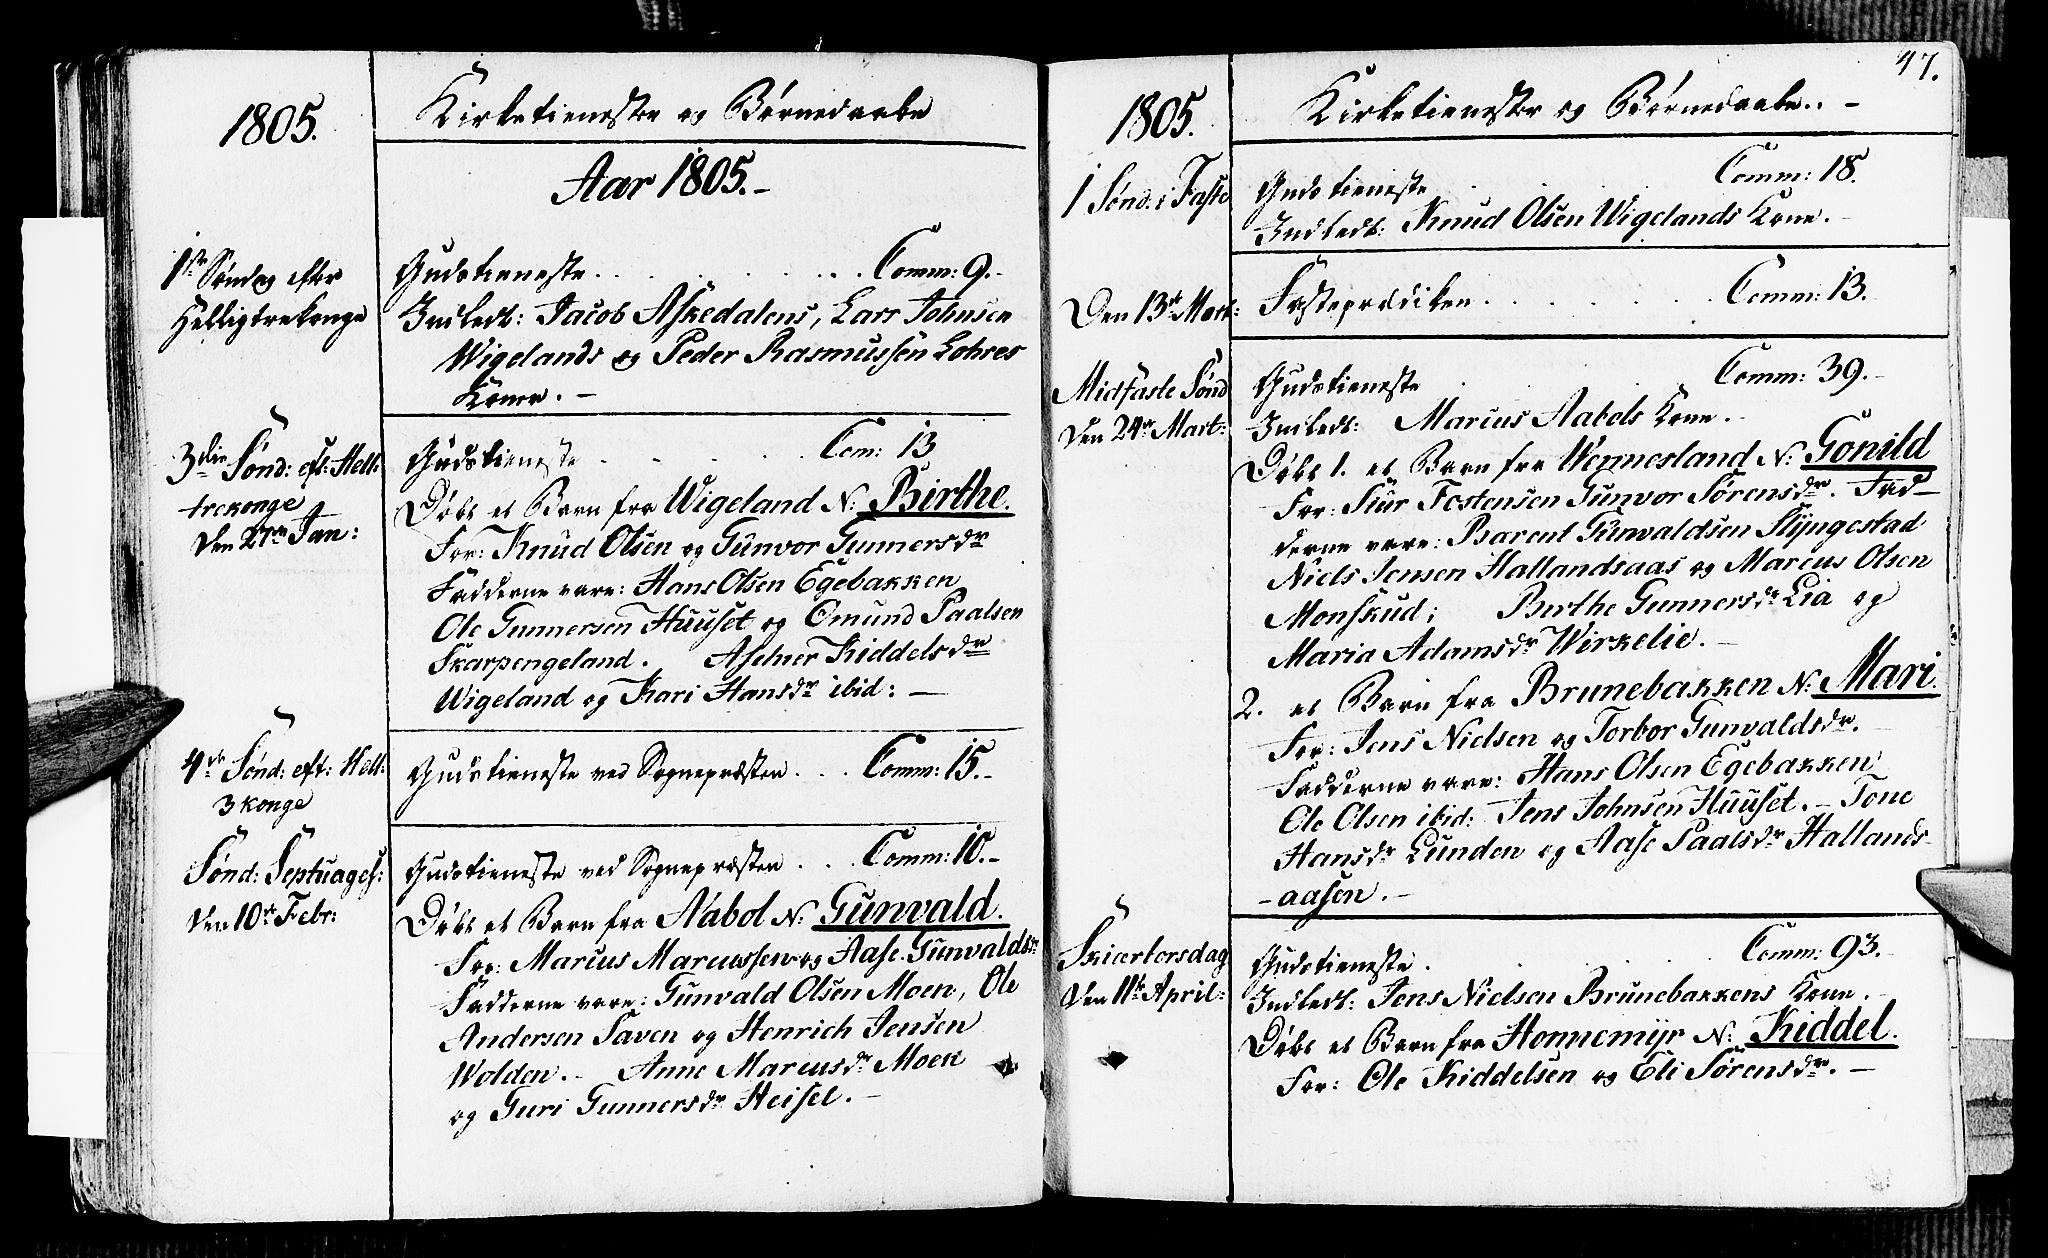 1805.
Kirketieneste og Børnedaabe
Aar 1805.-
1ste Søndag efter
Helligtrekonge
Gudstieneste . . . . . . . Comm: 9.-
Indledt: Jacob Askedalens, Lars Johnsen
Wigelands og Peder Rasmussen Lohnes
Koner. -
3die Sønd: eft: Hell:
trekonge
den 27de Jan:
Gudstieneste . . . . . Com: 13
Døbt et Barn fra Wigeland N: Birthe.
For: Knud Olsen og Gunvor Gunnersdr
Fadderne vare: Hans Olsen Egebakken
Ole Gunnersen Huuset og Omund Paalsen
Skarpengeland. Aselner Kiddelsdr
Wigeland og Kari Hansdr ibid: —
4de Sønd: eft: Hell:
3konge
Gudstieneste ved Sognepræsten . . . Comm: 15.-
Sønd: Septuages:
den 10de Febr:
Gudstieneste ved Sognepræsten . . . Comm: 10.-
Døbt et Barn fra Aabol N: Gunvald.
For: Marcus Marcussen og Aase Gunvaldsdr
Fadderne vare: Gunvald Olsen Moen, Ole
Andersen Saven og Henrich Jensen
Wolden. - Anne Marcusdr Moen
og Guri Gunnersdr Heisel. -
47.
1805.
Kirketienester og Børnedaabe. . -
1 Sønd: i Faste
Gudstieneste . . . . Comm: 18.
Indledt: Knud Olsen Wigelands Kone. -
Den 13de Mart:
Fasteprædiken . . . . . . . Comm: 13.
Midfaste Sønd
den 24de Mart:
Gudstieneste . . . . Comm: 39.-
Indledt: Marcus Aabols Kone.
Døbt 1. et Barn fra Wennesland N: Gonild
For: Siur Tostensen Gunvor Sørensdr. Fad-
derne vare: Barent Gunvaldsen Slyngestad
Niels Jensen Hallandsaas og Marcus Olsen
Monskud; Birthe Gunnersdr Lia og
Maria Adamsdr Wirkelie. -
2. et Barn fra Brunebakken N: Mari.
For: Jens Nielsen og Torbor Gunvaldsdr.
Fadderne vare: Hans Olsen Egebakken
Ole Olsen ibid: Jens Johnsen Huuset. - Tone
Hansdr Lunden og Aase Paalsdr Hallands-
-aasen. -
Skiertorsdag
den 11te April:
Gudstieneste . . . . . Comm: 93.-
Indledt: Jens Nielsen Brunebakkens Kone. -
Døbt et Barn fra Honnemyr N: Kiddel.
For: Ole Kiddelsen og Eli Sørensdr. -